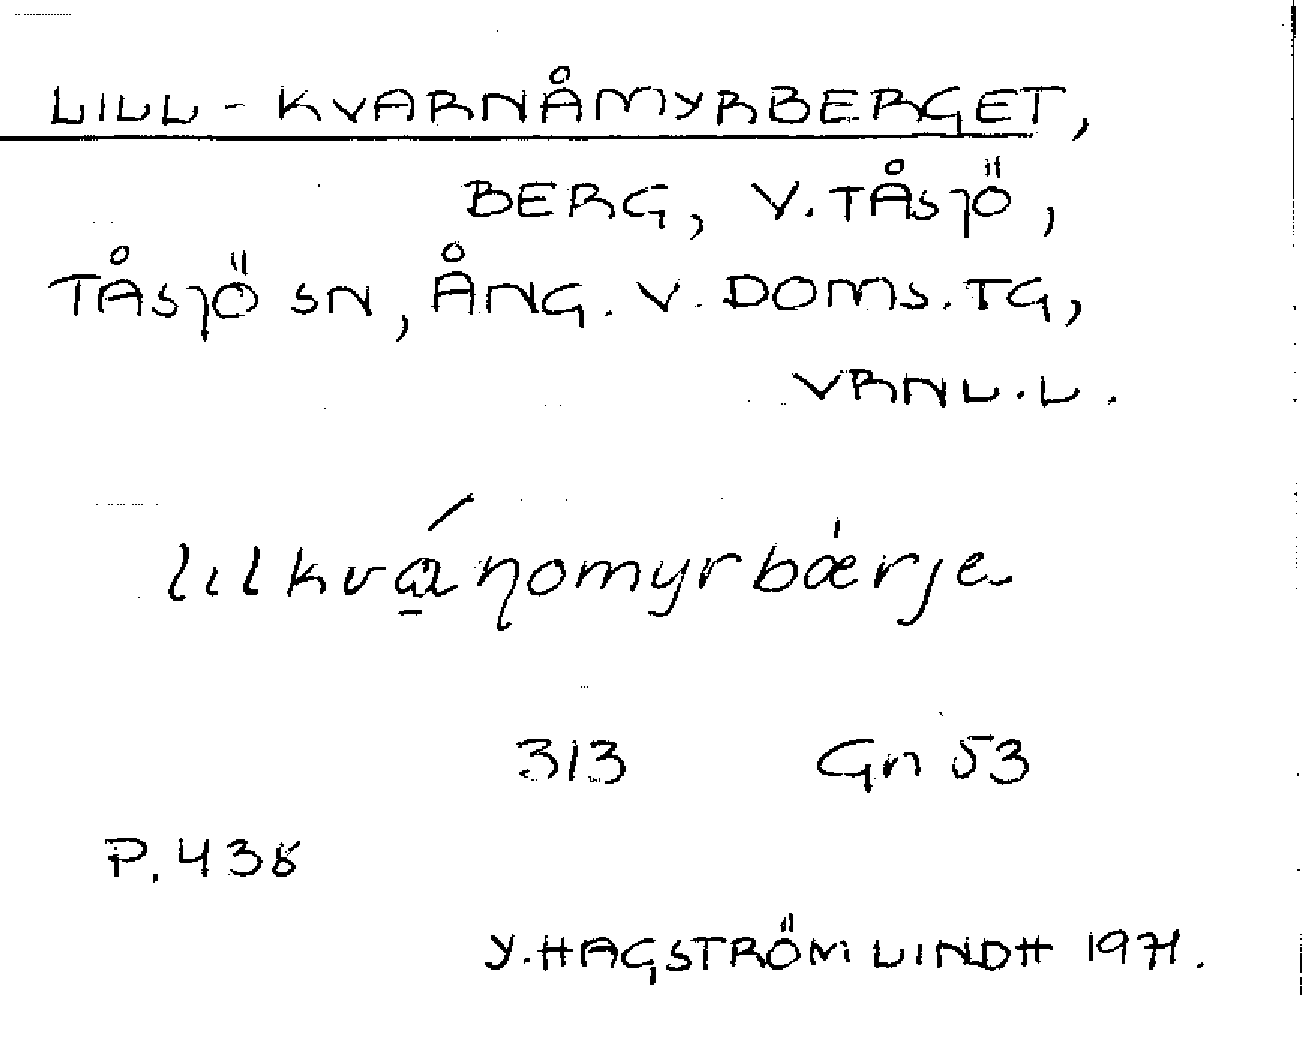 LILL-KVARNÅMYRBERGET,
BERG, V. TÅSJÖ,
TÅSJÖ SN, ÅNG. V. DOMS. TG,
VRNL. L.
lılkvánomyrbǽrje
313 Gn 53
P. 438
Y. HAGSTRÖM LINDH 1971.